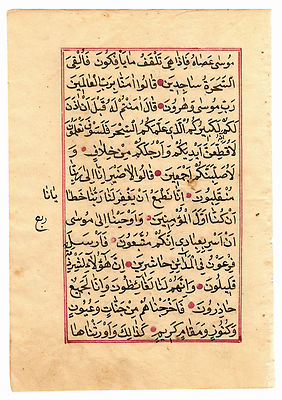 موسى عصاه فاذا هى تلقف ما يافكون فالقى
السحرة ساجدين قالوا امنا برب العالمين
رب موسى وهرون قال امنتم له قبل ان اذن
لكم انه لكبيركم الذى علمكم السحر فلسوف تعلمون
لاقطعن ايديكم وارجلكم من خلاف و
لاصلبنكم اجمعين قالوا لا ضير انا الى ربنا
منقلبون انا نطمع ان يغفر لنا ربنا خطا
يانا
ان كنا اول المؤمنين واوحينا الى موسى
ربع
ان اسر بعبادى انكم متبعون فارسل
فرعون فى المداين حاشرين ان هؤلاء لشرذمة
قليلون وانهم لنا لغائظون وانا لجميع
حاذرون فاخرجناهم من جنات وعيون
وكنوز ومقام كريم كذلك واورثناها